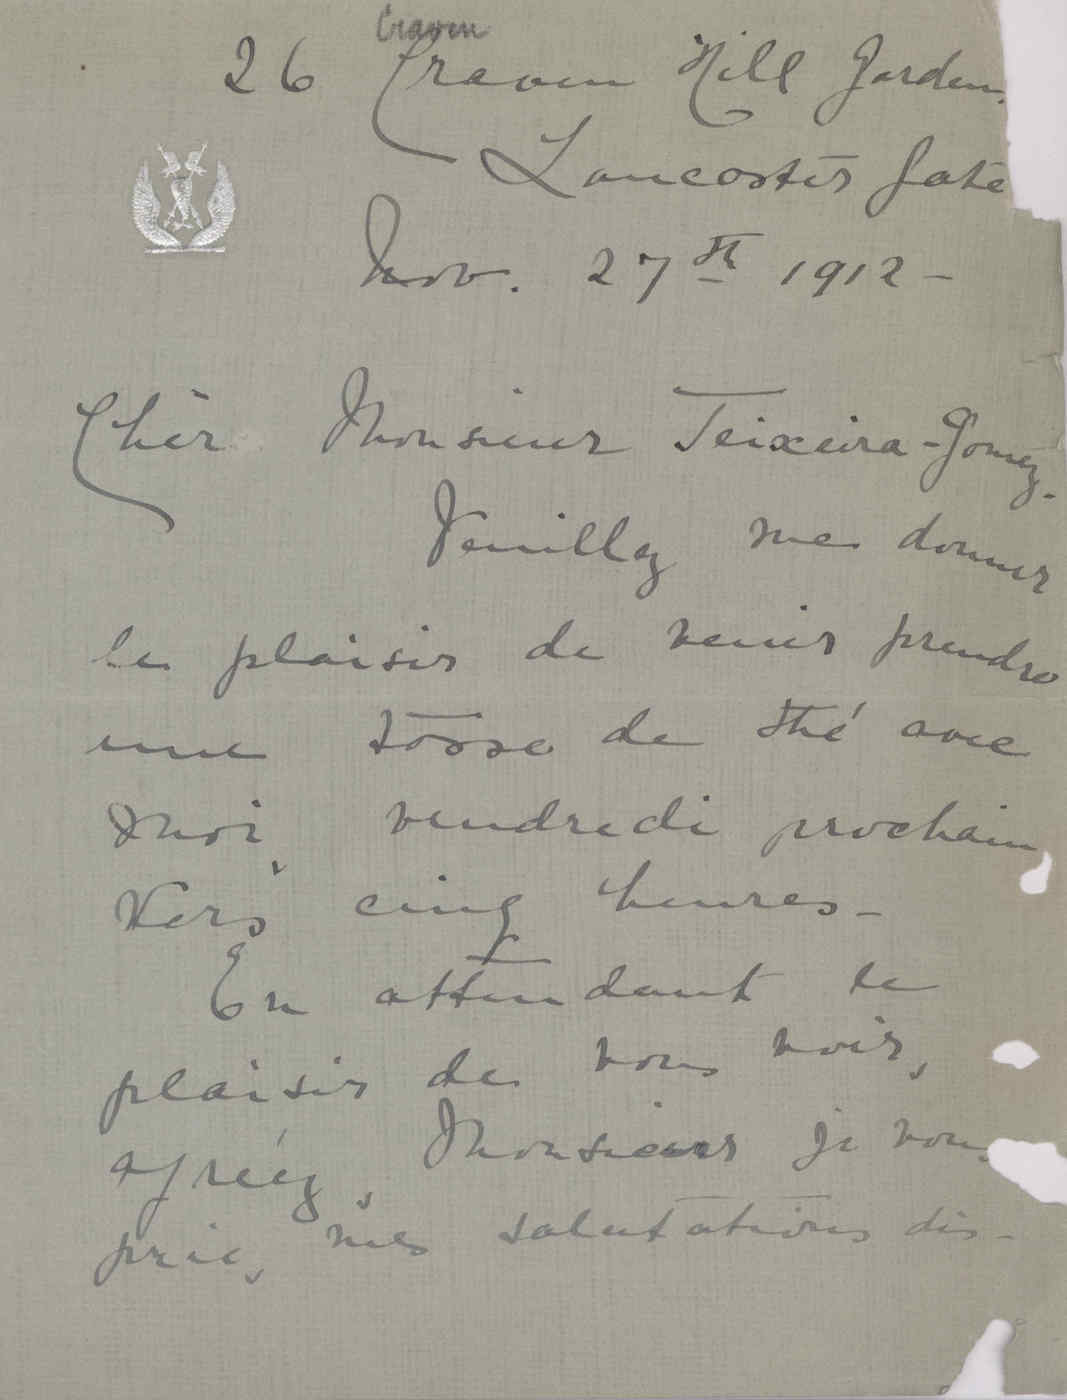 Craven
26 Craven Hill Gardens
Lancaster Gate
Nov. 27th 1912 -
Chèr Monsieur Teixeira-Gomez.
Veuillez me donner
le plaisir de venir prendre
une tasse de thé avec
moi, vendredi prochain
vers cinq heures -
En attendant le
plaisir de vous voir,
agréez, Monsieur je vous
prie, mes salutations dis-